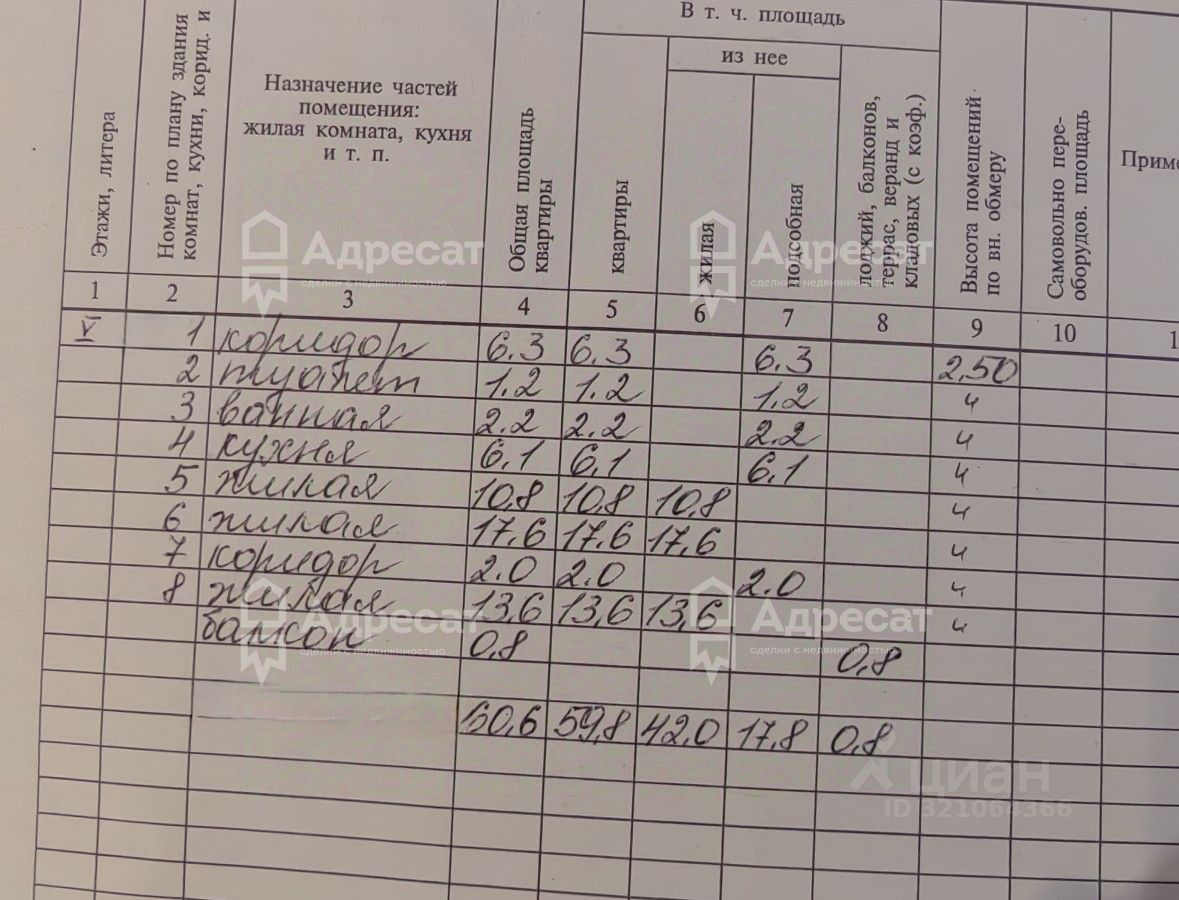 Этажи, литера
Номер по плану здания
комнат, кухни, корид. и
Назначение частей
помещения:
жилая комната, кухня
и т. п.
Общая площадь
квартиры
В т. ч. площадь
квартиры
из нее
жилая
подсобная
лоджий, балконов,
террас, веранд и
кладовых (с коэф.)
Высота помещений
по вн. обмеру
Самовольно пере-
оборудов. площадь
Приме
1 2 3 4 5 6 7 8 9 10 1
V 1 коридор 6.3 6.3 6.3 2,50
2 туалет 1.2 1.2 1.2 ч
3 ванная 2.2 2.2 2.2 ч
4 кухня 6.1 6.1 6.1 ч
5 жилая 10,8 10,8 10,8 ч
6 жилая 17.6 17.6 17,6 ч
7 коридор 2.0 2.0 2.0 ч
8 жилая 13,6 13,6 13,6 ч
балкон 0,8 0,8
60,6 59,8 42,0 17,8 0,8
Адресат
сделки с недвижимостью
Адресат
сделки с недвижимостью
Адресат
сделки с недвижимостью
Адресат
сделки с недвижимостью
циан
ID 321064366